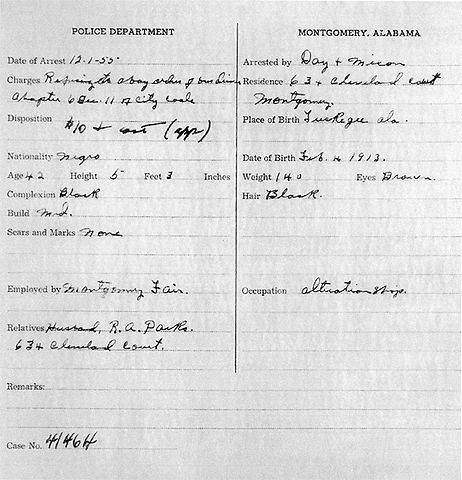 POLICE DEPARTMENT
MONTGOMERY, ALABAMA
Date of Arrest 12-1-55
Charges Refusing to obey orders of bus driver
Chapter 6 Sec. 11 of City Code
Disposition $10 + cost (app)
Nationality Negro
Age 42 Height 5 Feet 3 Inches
Complexion Black
Build Med.
Scars and Marks None
Employed by Montgomery Fair.
Relatives Husband, R.A. Parks.
634 Cleveland Court.
Remarks:
Case No. 41464
Arrested by Day + Mixon
Residence 634 Cleveland Court
Montgomery
Place of Birth Tuskegee Ala.
Date of Birth Feb. 4 1913.
Weight 140 Eyes Brown.
Hair Black.
Occupation